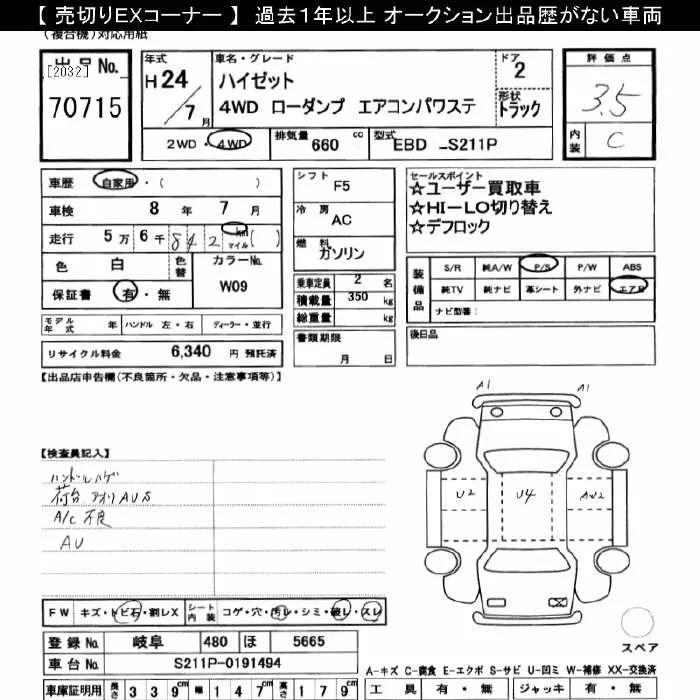 【 売切りEXコーナー 】 過去１年以上 オークション出品歴がない車両
(複合機)対応用紙
出品No.
[2032]
70715
年式
H24/7月
車名・グレード
ハイゼット
4WD ローダンプ エアコンパワステ
ドア
2
形状
トラック
評価点
3.5
内装
C
2WD・4WD
排気量 660 cc
型式 EBD -S211P
車歴 自家用・( )
車検 8年 7月
走行 5万6千842 km マイル ( )
色 白
色替
カラーNo.
W09
保証書 有・無
シフト
F5
冷房
AC
燃料
ガソリン
乗車定員 2 名
積載量 350 kg
総重量 kg
書類期限
月 日
セールスポイント
☆ユーザー買取車
☆HI-LO切り替え
☆デフロック
装備品
S/R 純A/W P/S P/W ABS
純TV 純ナビ 革シート 外ナビ エアB
ナビ型番:
後日品
モデル年式 年 ハンドル 左・右 ディーラー・並行
リサイクル料金 6,340 円 預託済
【出品店申告欄(不良箇所・欠品・注意事項等)】
【検査員記入】
ハンドルハゲ
荷台 アオリ AUS
A/C 不良
AU
A1 A1
U2 U4 AU2
スペア
FW キズ・トビ石・割レX
シート内装 コゲ・穴・汚レ・シミ・破レ・スレ
登録No. 岐阜 480 ほ 5665
車台No. S211P-0191494
車庫証明用 長さ 339cm 幅 147cm 高さ 179cm
A-キズ C-腐食 E-エクボ S-サビ U-凹ミ W-補修 XX-交換済
工具 有・無 ジャッキ 有・無